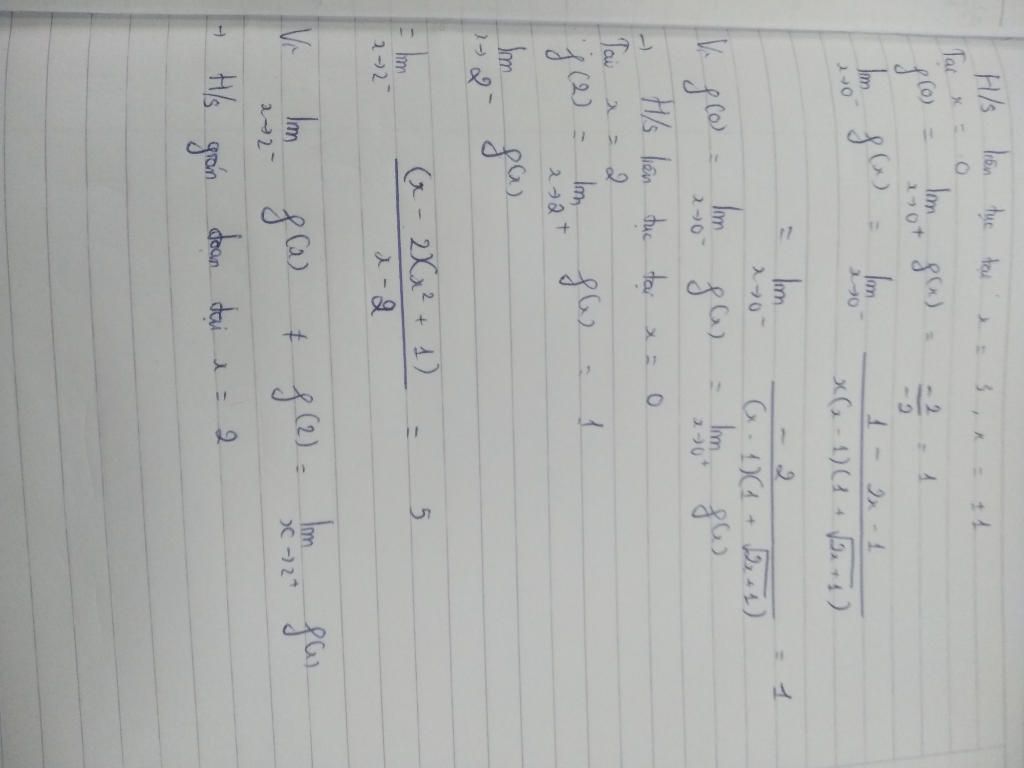 H/s liên tục tại x = 3, x = ±1
Tại x = 0
g(0) = lim x→0+ g(x) = -2/-2 = 1
lim x→0- g(x) = lim x→0- (1 - 2x - 1)/(x(x - 1)(1 + √(2x+1)))
= lim x→0- (-2)/((x - 1)(1 + √(2x+1))) = 1
Vì g(0) = lim x→0- g(x) = lim x→0+ g(x)
→ H/s liên tục tại x = 0
Tại x = 2
g(2) = lim x→2+ g(x) = 1
lim x→2- g(x)
= lim x→2- ((x - 2)(x² + 1))/(x - 2) = 5
Vì lim x→2- g(x) ≠ g(2) = lim x→2+ g(x)
→ H/s gián đoạn tại x = 2